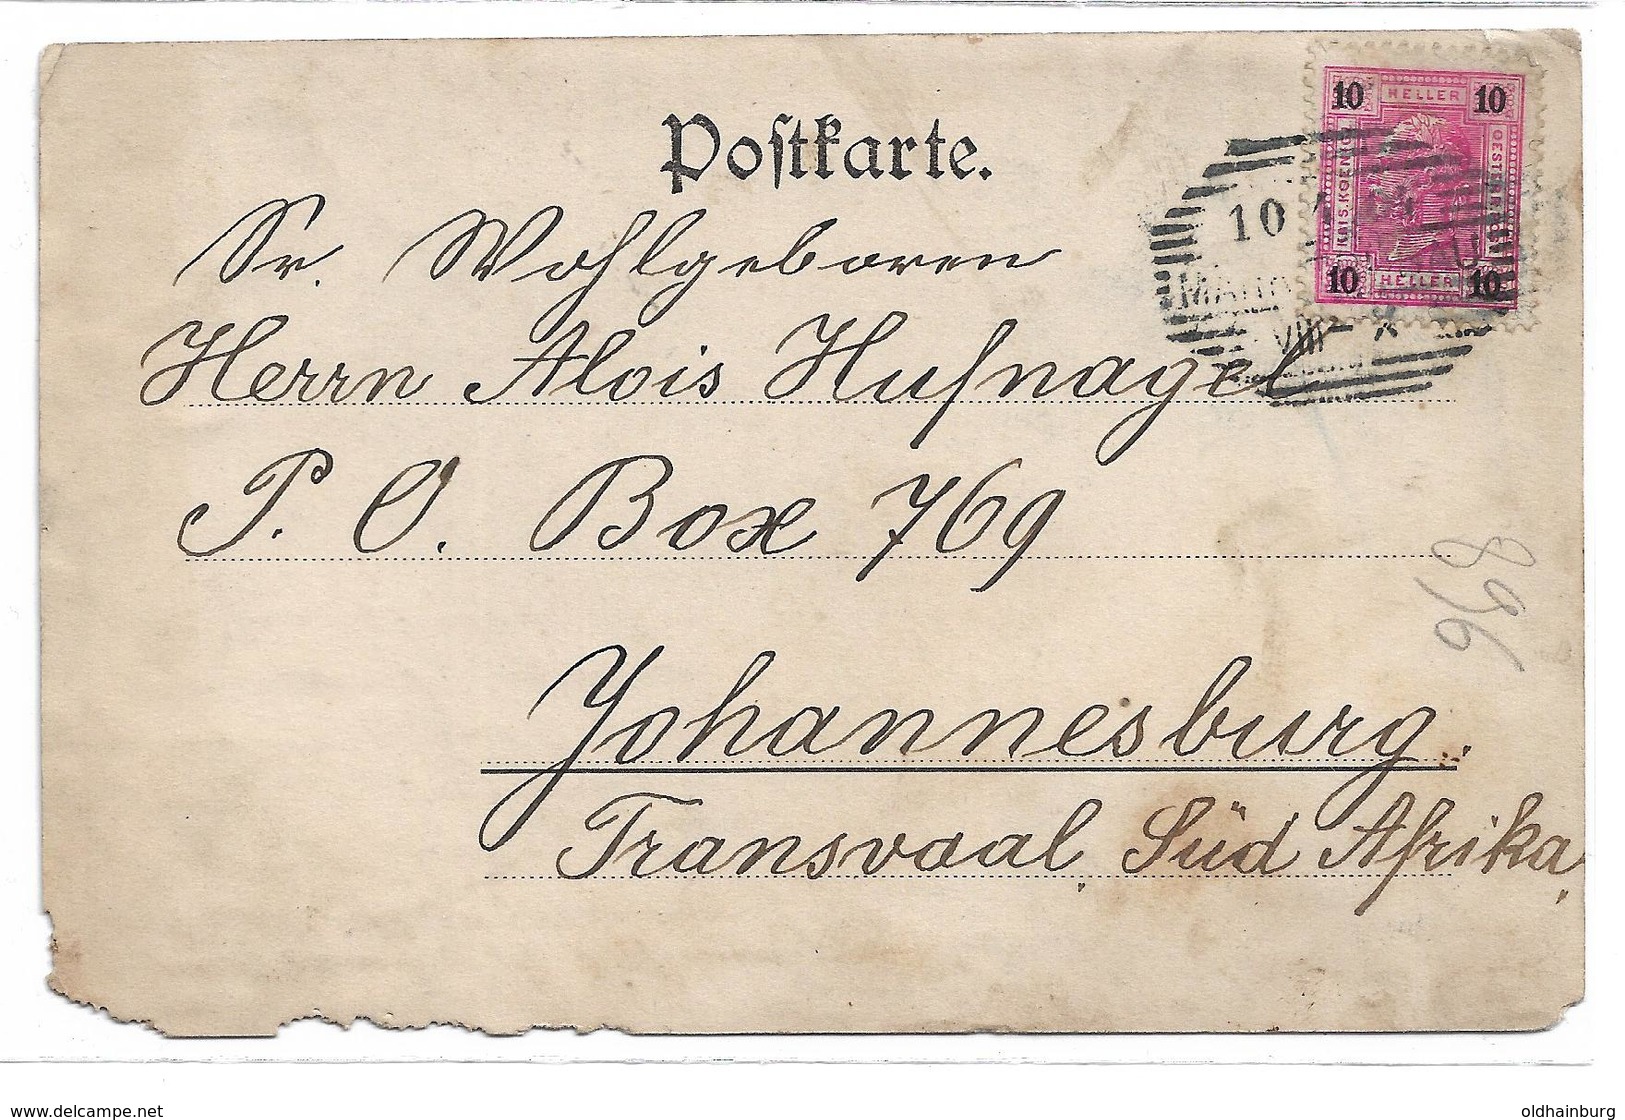 Postkarte.
10 HELLER 10
KAIS. KOENIGL.
OESTERREICH
10 HELLER 10
10
VIII
Sr. Wohlgeboren
Herrn Alois Hufnagel
P. O. Box 769
896
Johannesburg.
Transvaal, Süd Afrika,
www.delcampe.net
oldhainburg